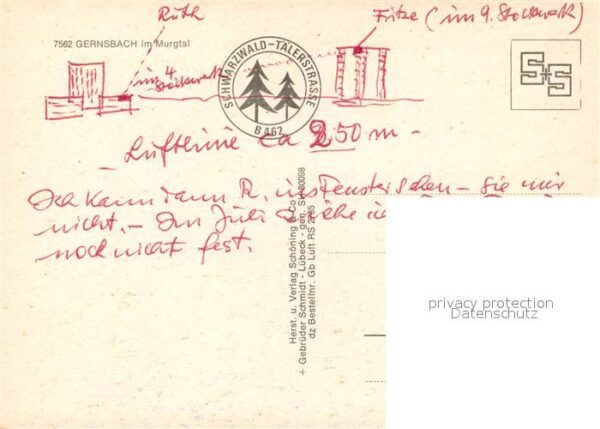 Ruth
Fritze (im 9. Stockwerk)
7562 GERNSBACH im Murgtal
im 4.
Stockwerk
SCHWARZWALD-TÄLERSTRASSE
B 462
S+S
Luftlinie ca 250 m -
Ich kann dann R. ins Fenster sehen - Sie mir
nicht. - Im Juli
noch nicht fest.
Herst. u. Verlag Schöning & Co.
+ Gebrüder Schmidt - Lübeck - ges.
dz Bestellnr. Gb Luft RS
privacy protection
Datenschutz